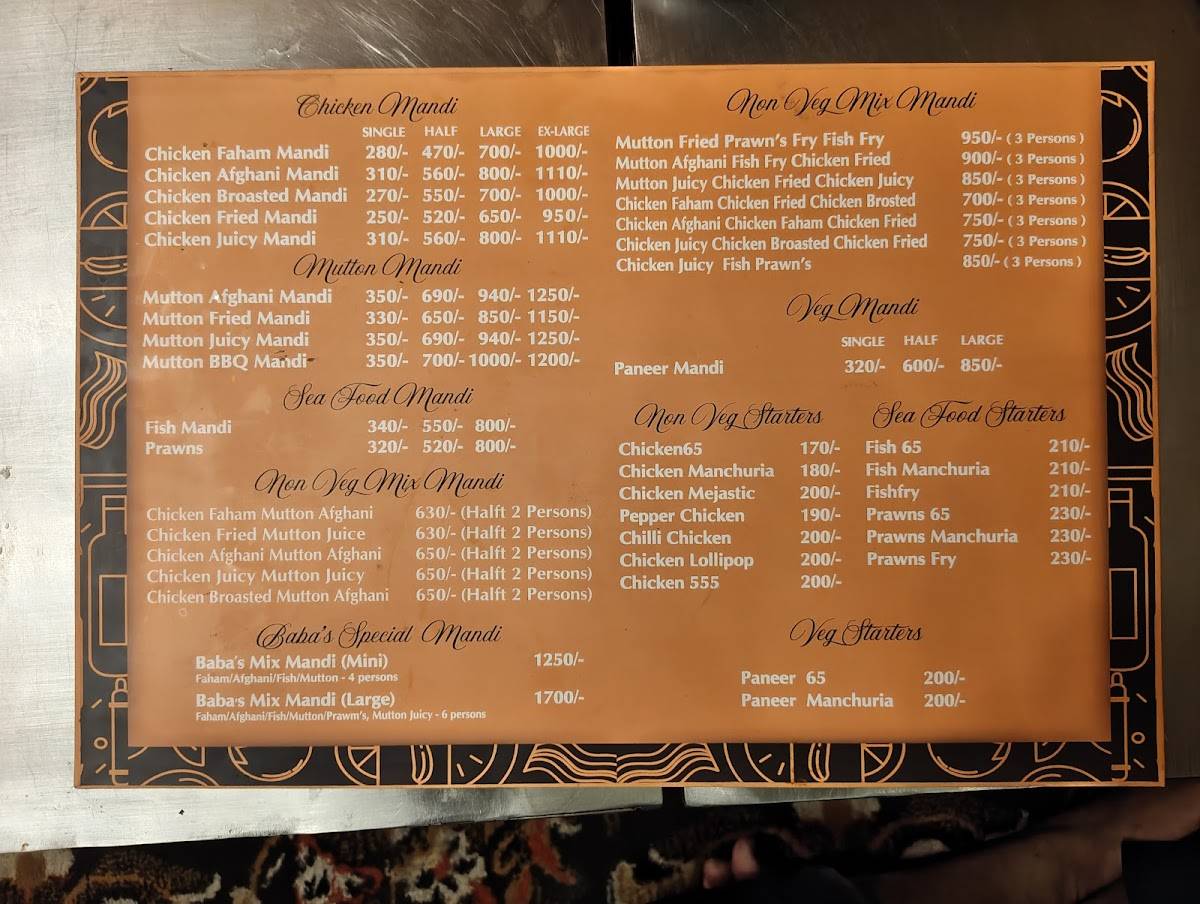 Chicken Mandi
SINGLE HALF LARGE EX-LARGE
Chicken Faham Mandi 280/- 470/- 700/- 1000/-
Chicken Afghani Mandi 310/- 560/- 800/- 1110/-
Chicken Broasted Mandi 270/- 550/- 700/- 1000/-
Chicken Fried Mandi 250/- 520/- 650/- 950/-
Chicken Juicy Mandi 310/- 560/- 800/- 1110/-
Mutton Mandi
Mutton Afghani Mandi 350/- 690/- 940/- 1250/-
Mutton Fried Mandi 330/- 650/- 850/- 1150/-
Mutton Juicy Mandi 350/- 690/- 940/- 1250/-
Mutton BBQ Mandi 350/- 700/- 1000/- 1200/-
Sea Food Mandi
Fish Mandi 340/- 550/- 800/-
Prawns 320/- 520/- 800/-
Non Veg Mix Mandi
Chicken Faham Mutton Afghani 630/- (Halft 2 Persons)
Chicken Fried Mutton Juice 630/- (Halft 2 Persons)
Chicken Afghani Mutton Afghani 650/- (Halft 2 Persons)
Chicken Juicy Mutton Juicy 650/- (Halft 2 Persons)
Chicken Broasted Mutton Afghani 650/- (Halft 2 Persons)
Baba's Special Mandi
Baba's Mix Mandi (Mini) 1250/-
Faham/Afghani/Fish/Mutton - 4 persons
Baba's Mix Mandi (Large) 1700/-
Faham/Afghani/Fish/Mutton/Prawm's, Mutton Juicy - 6 persons
Non Veg Mix Mandi
Mutton Fried Prawn's Fry Fish Fry 950/- ( 3 Persons )
Mutton Afghani Fish Fry Chicken Fried 900/- ( 3 Persons )
Mutton Juicy Chicken Fried Chicken Juicy 850/- ( 3 Persons )
Chicken Faham Chicken Fried Chicken Brosted 700/- ( 3 Persons )
Chicken Afghani Chicken Faham Chicken Fried 750/- ( 3 Persons )
Chicken Juicy Chicken Broasted Chicken Fried 750/- ( 3 Persons )
Chicken Juicy Fish Prawn's 850/- ( 3 Persons )
Veg Mandi
SINGLE HALF LARGE
Paneer Mandi 320/- 600/- 850/-
Non Veg Starters
Chicken65 170/-
Chicken Manchuria 180/-
Chicken Mejastic 200/-
Pepper Chicken 190/-
Chilli Chicken 200/-
Chicken Lollipop 200/-
Chicken 555 200/-
Sea Food Starters
Fish 65 210/-
Fish Manchuria 210/-
Fishfry 210/-
Prawns 65 230/-
Prawns Manchuria 230/-
Prawns Fry 230/-
Veg Starters
Paneer 65 200/-
Paneer Manchuria 200/-